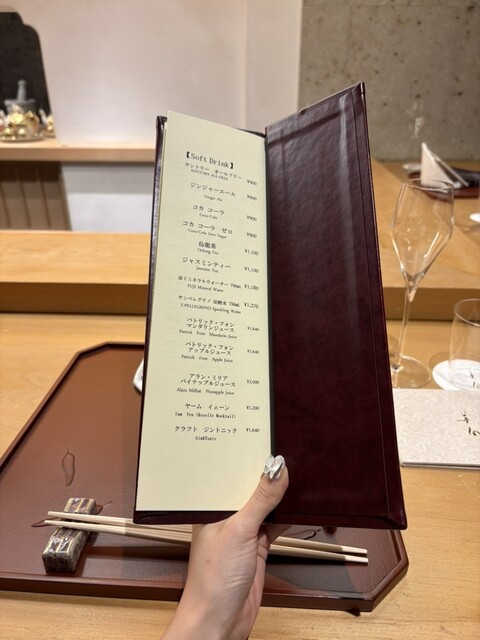 【Soft Drink】
サントリー オールフリー ¥900
SUNTORY ALL-FREE
ジンジャーエール ¥900
Ginger Ale
コカ コーラ ¥900
Coca-Cola
コカ コーラ ゼロ ¥900
Coca-Cola Zero Sugar
烏龍茶 ¥1,100
Oolong Tea
ジャスミンティー ¥1,100
Jasmine Tea
富士ミネラルウォーター 780mL ¥1,180
FUJI Mineral Water
サンペレグリノ 炭酸水 750mL ¥1,270
S.PELLEGRINO Sparkling Water
パトリック・フォン
マンダリンジュース ¥1,640
Patrick Font Mandarin Juice
パトリック・フォン
アップルジュース ¥1,640
Patrick Font Apple Juice
アラン・ミリア
パイナップルジュース ¥2,000
Alain Milliat Pineapple Juice
ヤーム イェーン ¥1,200
Yam Yen (Roselle Mocktail)
クラフト ジントニック ¥1,640
Gin&Tonic